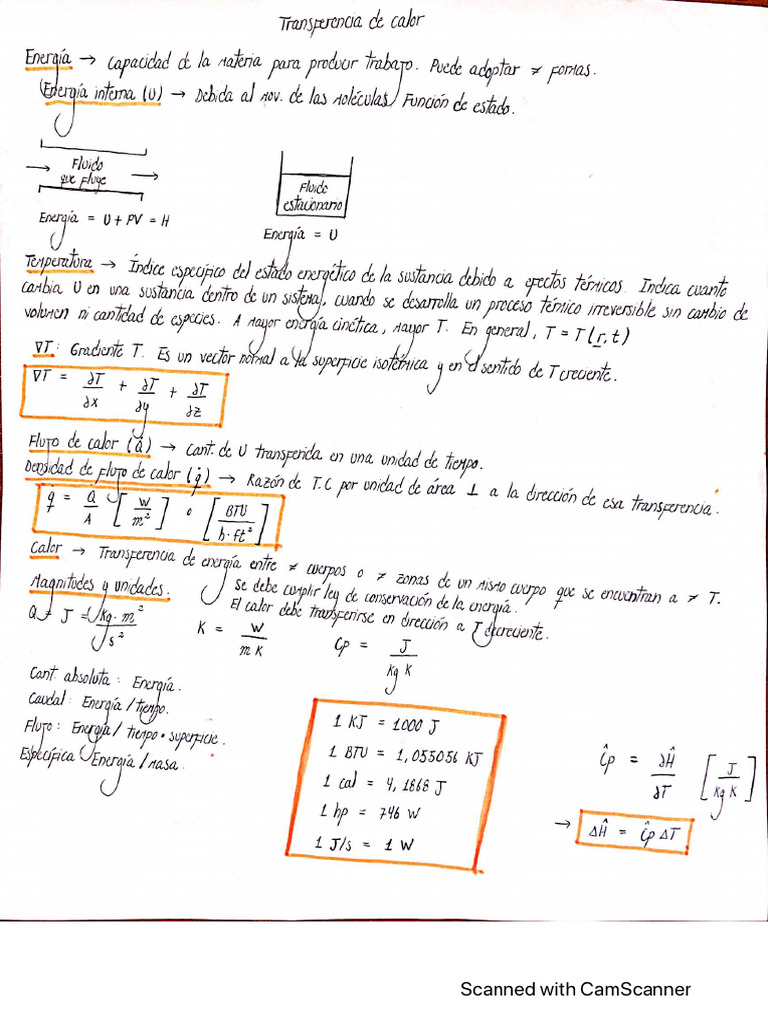 Transferencia de calor
Energía → Capacidad de la materia para producir trabajo. Puede adoptar ≠ formas.
Energía interna (U) → Debida al mov. de las moléculas. Función de estado.
→ Fluido que fluye →
Energía = U + PV = H
Fluido estacionario
Energía = U
Temperatura → Índice específico del estado energético de la sustancia debido a efectos térmicos. Indica cuanto
cambia U en una sustancia dentro de un sistema, cuando se desarrolla un proceso térmico irreversible sin cambio de
volumen ni cantidad de especies. A mayor energía cinética, mayor T. En general, T = T(r,t)
∇T: Gradiente T. Es un vector normal a la superficie isotérmica y en el sentido de T creciente.
∇T = ∂T/∂x + ∂T/∂y + ∂T/∂z
Flujo de calor (Q̇) → Cant. de U transferida en una unidad de tiempo.
Densidad de flujo de calor (q̇) → Razón de T.C por unidad de área ⊥ a la dirección de esa transferencia.
q = Q/A [W/m²] o [BTU/h·ft²]
Calor → Transferencia de energía entre ≠ cuerpos o ≠ zonas de un mismo cuerpo que se encuentran a ≠ T.
Se debe cumplir ley de conservación de la energía.
El calor debe transferirse en dirección a T decreciente.
Magnitudes y unidades.
Q = J = kg·m²/s²
K = W/mK
Cp = J/kg K
Cant. absoluta: Energía.
Caudal: Energía/tiempo.
Flujo: Energía/tiempo·superficie.
Específica Energía/masa.
1 KJ = 1000 J
1 BTU = 1,055056 KJ
1 cal = 4,1868 J
1 hp = 746 W
1 J/s = 1 W
Ĉp = ∂Ĥ/∂T [J/kg K]
→ ΔĤ = Ĉp ΔT
Scanned with CamScanner